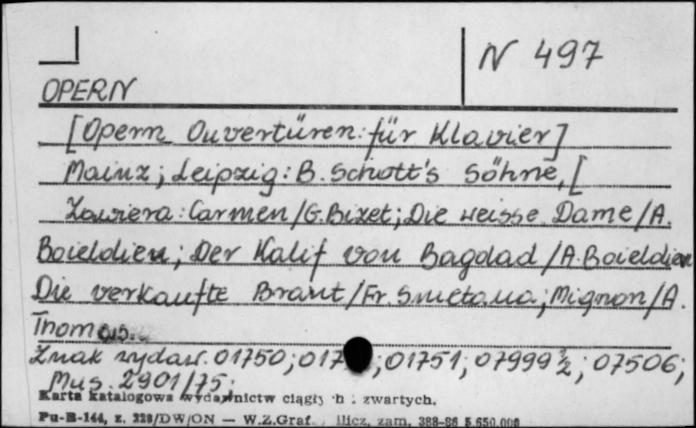 N 497
OPERN
[Opern Ouvertüren: für Klavier]
Mainz; Leipzig: B. Schott's Söhne, [
Zawiera: Carmen/G.Bizet; Die weisse Dame/A.
Boieldieu; Der Kalif von Bagdad/A.Boieldieu
Die verkaufte Braut/Fr. Smetana; Mignon/A.
Thomas.
Znak wydaw. 01750; 017 ; 01751; 07999½; 07506;
Mus. 2901/75;
Karta katalogowa wydawnictw ciągły h i zwartych.
Pu-B-144, z. 228/DW/ON — W.Z.Graf. zam. 388-86 5.650.000